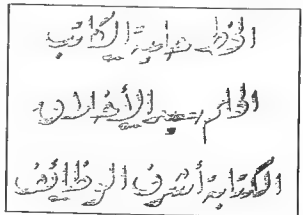 الخط صناعة الكاتب
القلم سفير الأخلاق
الكتابة أشرف الوظائف